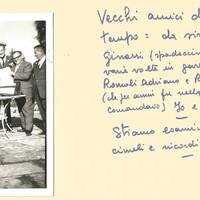 Vecchi amici d
tempo: da sin
Ginassi (spadaccin
varie volte in gar
Romoli Adriano e R
(che fu anni fu nella
comandavo) Io e
Stiamo esamin
cimeli e ricordi